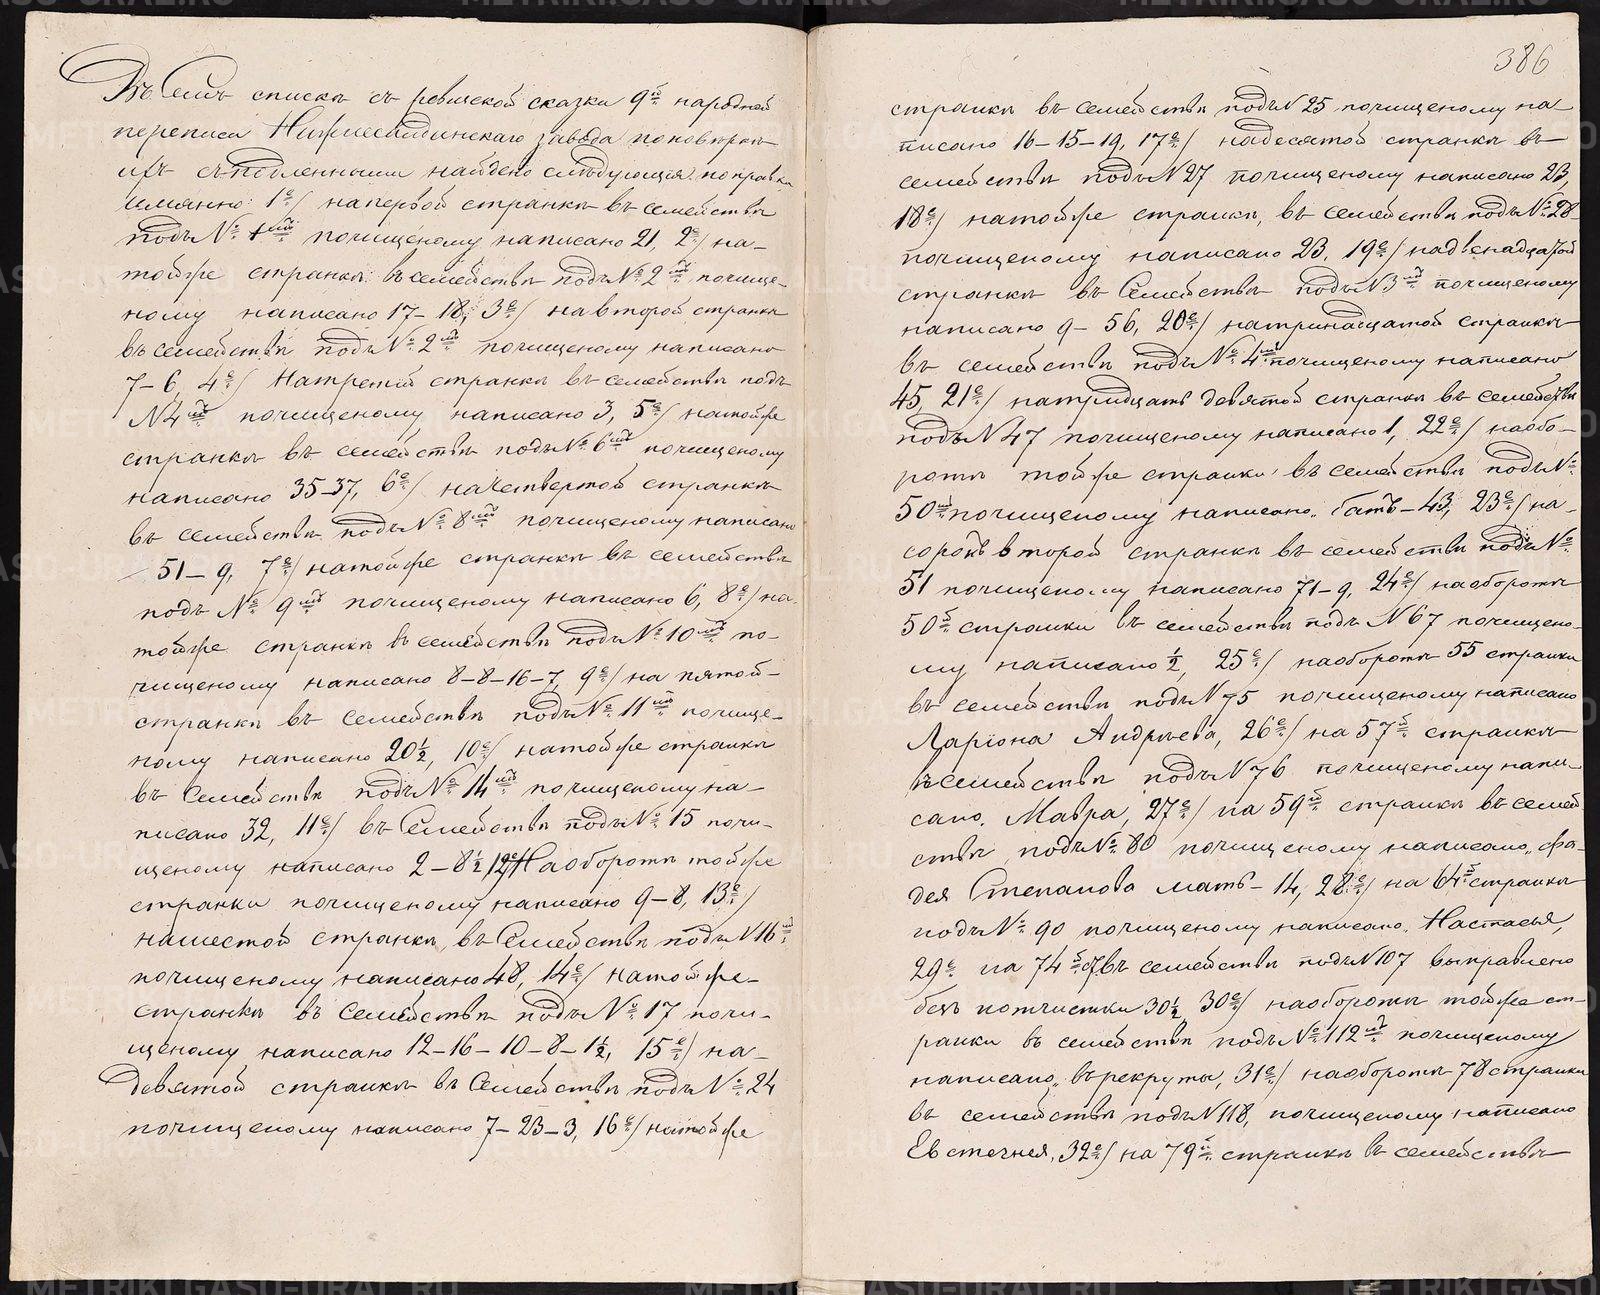 Въ Семъ списке съ ревизской сказки 9й народной
переписи Нижнесалдинскаго завода поповтрки
найдено следующия поправки
имянно: 1е/ напервой странке въ семействе
подъ № 1мъ почищеному написано 21, 2е/ на-
тойже странке въ семействе подъ № 2мъ почище-
ному написано 17-18, 3е/ навторой странке
въ семействе подъ № 2мъ почищеному написано
7-6, 4е/ Натретей странке въ семействе подъ
№ 4мъ почищеному написано 3, 5е/ натойже
странке въ семействе подъ № 6мъ почищеному
написано 35-37, 6е/ начетвертой странке
въ семействе подъ № 8мъ почищеному написано
51-9, 7е/ натойже странке въ семействе
подъ № 9мъ почищеному написано 6, 8е/ на-
тойже странке въ семействе подъ № 10мъ по-
чищеному написано 8-8-16-7, 9е/ на пятой-
странке въ семействе подъ № 11мъ почище-
ному написано 20½, 10е/ натойже странке
въ Семействе подъ № 14мъ почищеному на-
писано 32, 11е/ въ Семействе подъ № 15 почи-
щеному написано 2-8½, 12е/ Наобороте тойже
странки почищеному написано 9-8, 13е/
нашестой странке, въ Семействе подъ № 16й
почищеному написано 48, 14е/ натойже-
странке въ Семействе подъ № 17 почи-
щеному написано 12-16-10-8-1½, 15е/ на-
девятой странке въ Семействе подъ № 24
почищеному написано 7-23-3, 16е/ натойже
386
странке въ семействе подъ № 25 почищеному на
писано 16-15-19, 17е/ надесятой странке въ
семействе подъ № 27 почищеному написано 23,
18е/ натойже странке, въ семействе подъ № 28
почищеному написано 23, 19е/ надвенадцатой
странке въ Семействе подъ № 3мъ почищеному
написано 9-56, 20е/ натринатцатой странке
въ семействе подъ № 4мъ почищеному написано
45, 21е/ натридцать девятой странке въ семействе
подъ № 47 почищеному написано 1, 22е/ наобо-
роте тойже странки въ семействе подъ №
50мъ почищеному написано 43, 23е/ на-
сорокъ второй странке въ семействе подъ №
51 почищеному написано 71-9, 24е/ наобороте
50й странки въ семействе подъ № 67 почищено-
му написано ½, 25е/ наобороте 55 странки
въ семействе подъ № 75 почищеному написано
Лариона Андреева, 26е/ на 57й странке
въ семействе подъ № 76 почищеному напи-
сано. Мавра, 27е/ на 59й странке въ семей
стве подъ № 80 почищеному написано „Фа-
дея Степанова мать-14, 28е/ на 64й странке
подъ № 90 почищеному написано. Настасья,
29е на 74й въ семействе подъ № 107 выправлено
безъ потчистки 30½, 30е/ наобороте тойже ст-
ранки въ семействе подъ № 112мъ почищеному
написано „въ рекруты, 31е/ наобороте 78 странки
въ семействе подъ № 118, почищеному написано
Евстегнея, 32е/ на 79й странке въ семействе